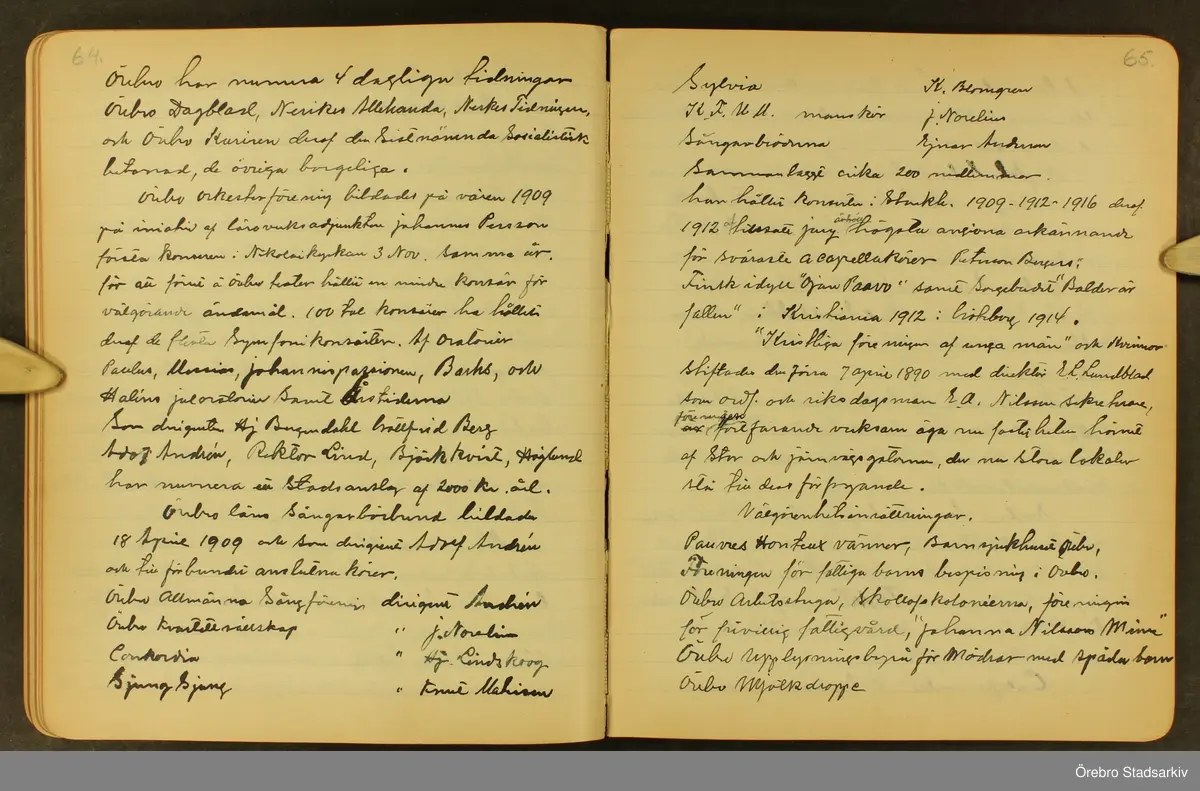 64.
Örebro har numera 4 dagliga tidningar
Örebro Dagblad, Nerikes Allehanda, Nerkes Tidningen,
och Örebro Kuriren deraf den Sistnämnda Socialistisk
betonad, de övriga borgeliga.
Örebro orkesterförening bildades på våren 1909
på iniativ af läroverksadjunkten johannes Persson
första konseren i Nikolaikyrkan 3 Nov. samma år.
för att förut å Örebro teater hållit en mindre konsär för
välgörande ändamål. 100 tal konsärer ha hållits
deraf de flesta Symfonikonsärter. Af Oratorier
Paulus, Messias, johannispassionen, Bachs, och
Haléns juloratorier Samt Årstiderna
Som dirigenter Hj Bergendahl Gottfrid Berg
Adolf Andrén, Rektor Lind, Björkkvist, Höglund
har numera ett Stadsanslag af 2000 Kr. årl.
Örebro läns Sångarförbund bildades
18 Aprie 1909 och Som dirigent Adolf Andrén
och till förbundet anslutna körer.
Örebro Allmänna Sångförening dirigent Andrén
Örebro Kvartettsällskap " j. Norelius
Concordia " Hj. Lindskoog
Sjung Sjung " Knut
65.
Sylvia K. Blomgren
K. F. U. M. manskör j. Norelius
Sångarbröderna Ejnar Anderson
Sammanlaggt cirka 200 medlemmar.
har hållit konserter i Stockh. 1909-1912-1916 deraf
1912 af tillsatt jury erhöll högsta angivna erkännande
för svåraste acapellakörer Peterson Bergers;
Finsk idyll "Ojan Paavo" samt Sorgebudet "Balder är
fallen" i Kristiania 1912 i Göteborg 1914.
"Kristliga föreningen af unga män" och Kvinnor
stiftades den förra 7 aprie 1890 med direktör E.L. Lundblad
som ordf. och riksdagsman E.A. Nilsson sekreterare,
föreningen
är fortfarande verksam äga nu fastigheten hörnet
af Stor och järnvägsgatorna, der nu stora lokaler
stå till dess förfogande.
Välgörenhetsinrättningar.
Pauvres Honteux vänner, Barnsjukhuset Örebro,
Föreningen för fattiga barns bespisning i Örebro.
Örebro Arbetsstuga, Skollofskolonierna, föreningen
för frivillig fattigvård, "johanna Nilssons Minne"
Örebro Upplysningsbyrå för Mödrar med späda barn
Örebro Mjölkdroppe
Örebro Stadsarkiv